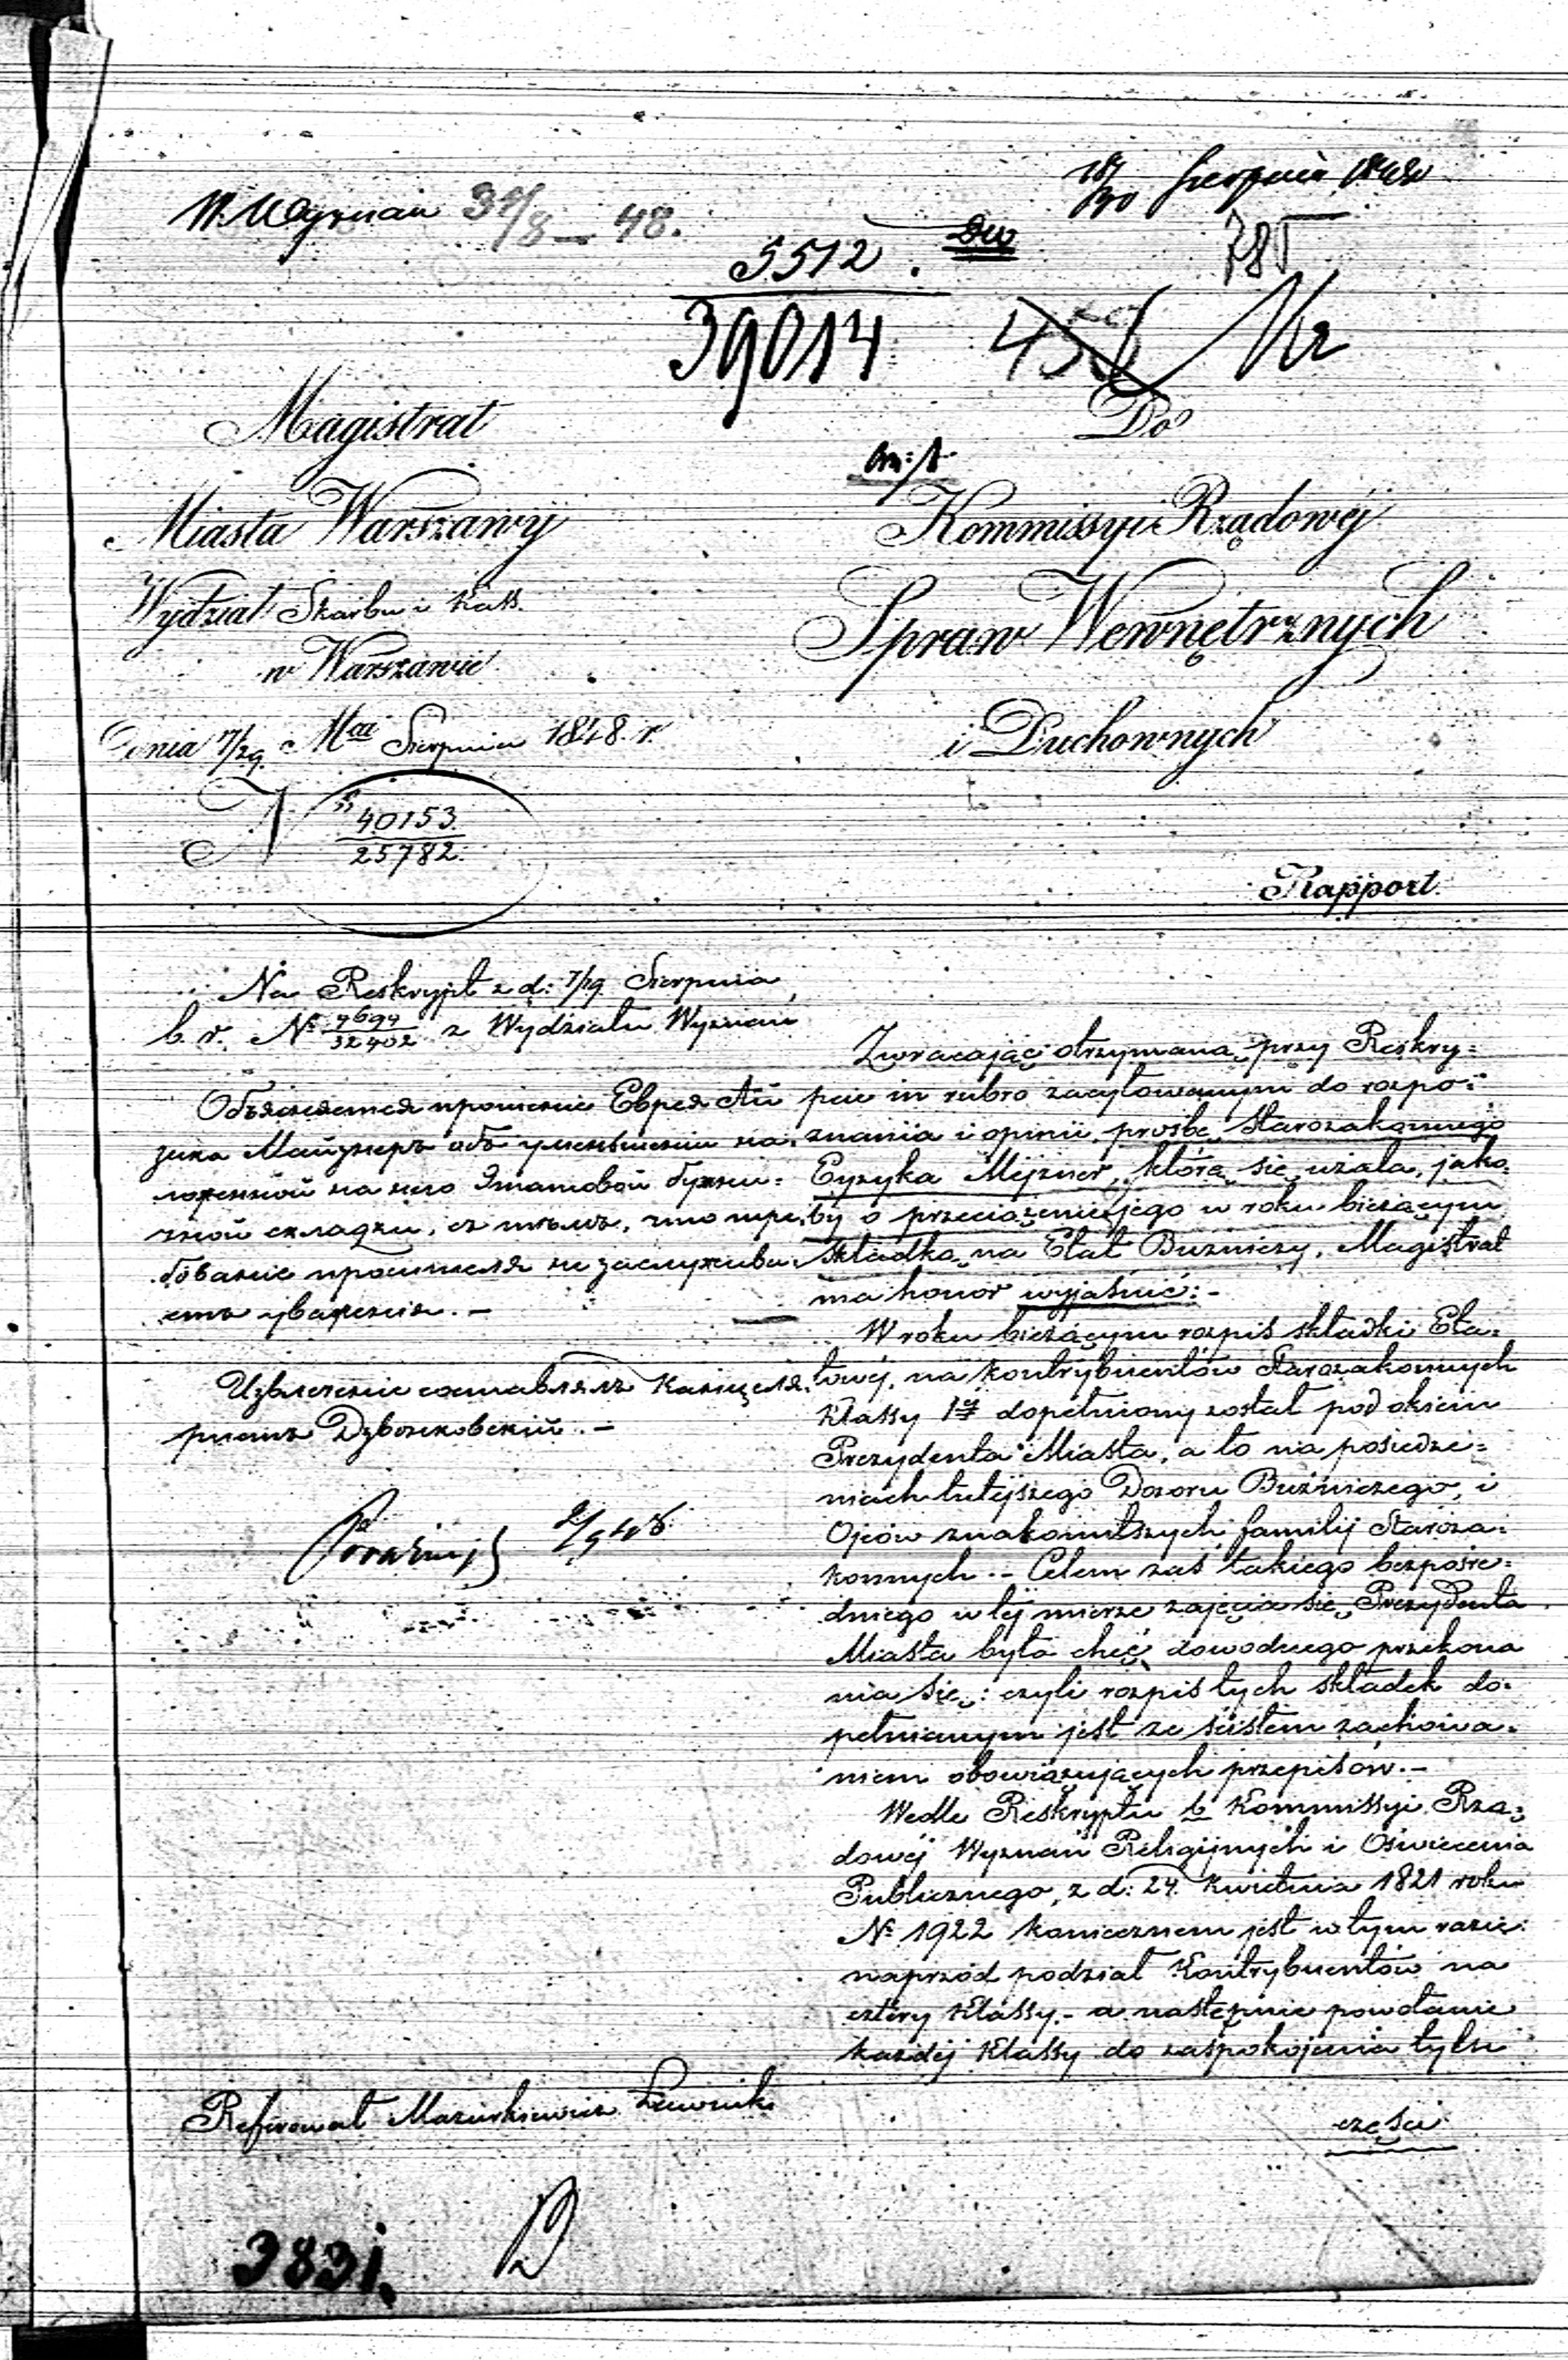 W. Wyznań 31/8 – 48.
18/30 Sierpnia 1848
5512.
785
39014
Magistrat
Miasta Warszawy
Wydział Skarbu i Kass.
w Warszawie
Dnia 7/29 Mca Sierpnia 1848 r.
N 40153
25782.
Do
Kommissyi Rządowéj
Spraw Wewnętrznych
i Duchownych
Rapport.
Na Reskrypt z d: 7/19 Sierpnia
b. r. № 7694/32402 z Wydziału Wyznań
Объясняется прошение Еврея Ай
зика Майзнеръ объ уменьшении на-
ложенной на него Этатовой бужни=
чной складки, съ тѣмъ, что тре-
бование просителя не заслужива-
етъ уважения. –
Извлечение составлялъ Канцеля-
ристъ Дзвонковский. –
2/9 48
Zwracając otrzymaną przy Reskry=
pcie in rubro zacytowanym do rozpo=
znania i opinii, prośbę Starozakonnego
Eyzyka Mejzner, który się użala, jako=
by o przeciążenie jego w roku bieżącym
składką na Etat Bużniczy, Magistrat
ma honor wyjaśnić: –
W roku bieżącym rozpis składki Eta=
towéj, na kontrybuentów Starozakonnych
Klassy 1éj dopełniony został pod okiem
Prezydenta Miasta, a to na posiedze=
niach tutejszego Dozoru Bużniczego, i
Ojców znakomitszych familij Staroza=
konnych. – Celem zaś takiego bezpośre=
dniego w téj mierze zajęcia się Prezydenta
Miasta była chęć dowodnego przekona
nia się: czyli rozpis tych składek do=
pełnianym jest ze ścisłem zachowa=
niem obowiązujących przepisów. –
Wedle Reskryptu b. Kommissyi Rzą=
dowéj Wyznań Religijnych i Oświecenia
Publicznego, z d: 24. Kwietnia 1821 roku
№ 1922 koniecznem jest w tym razie:
naprzód podział Kontrybuentów na
cztéry Klassy. – a następnie powołanie
każdéj Klassy do zaspokojenia tylu
części
Referował Mazurkiewicz Ławnik
3831.